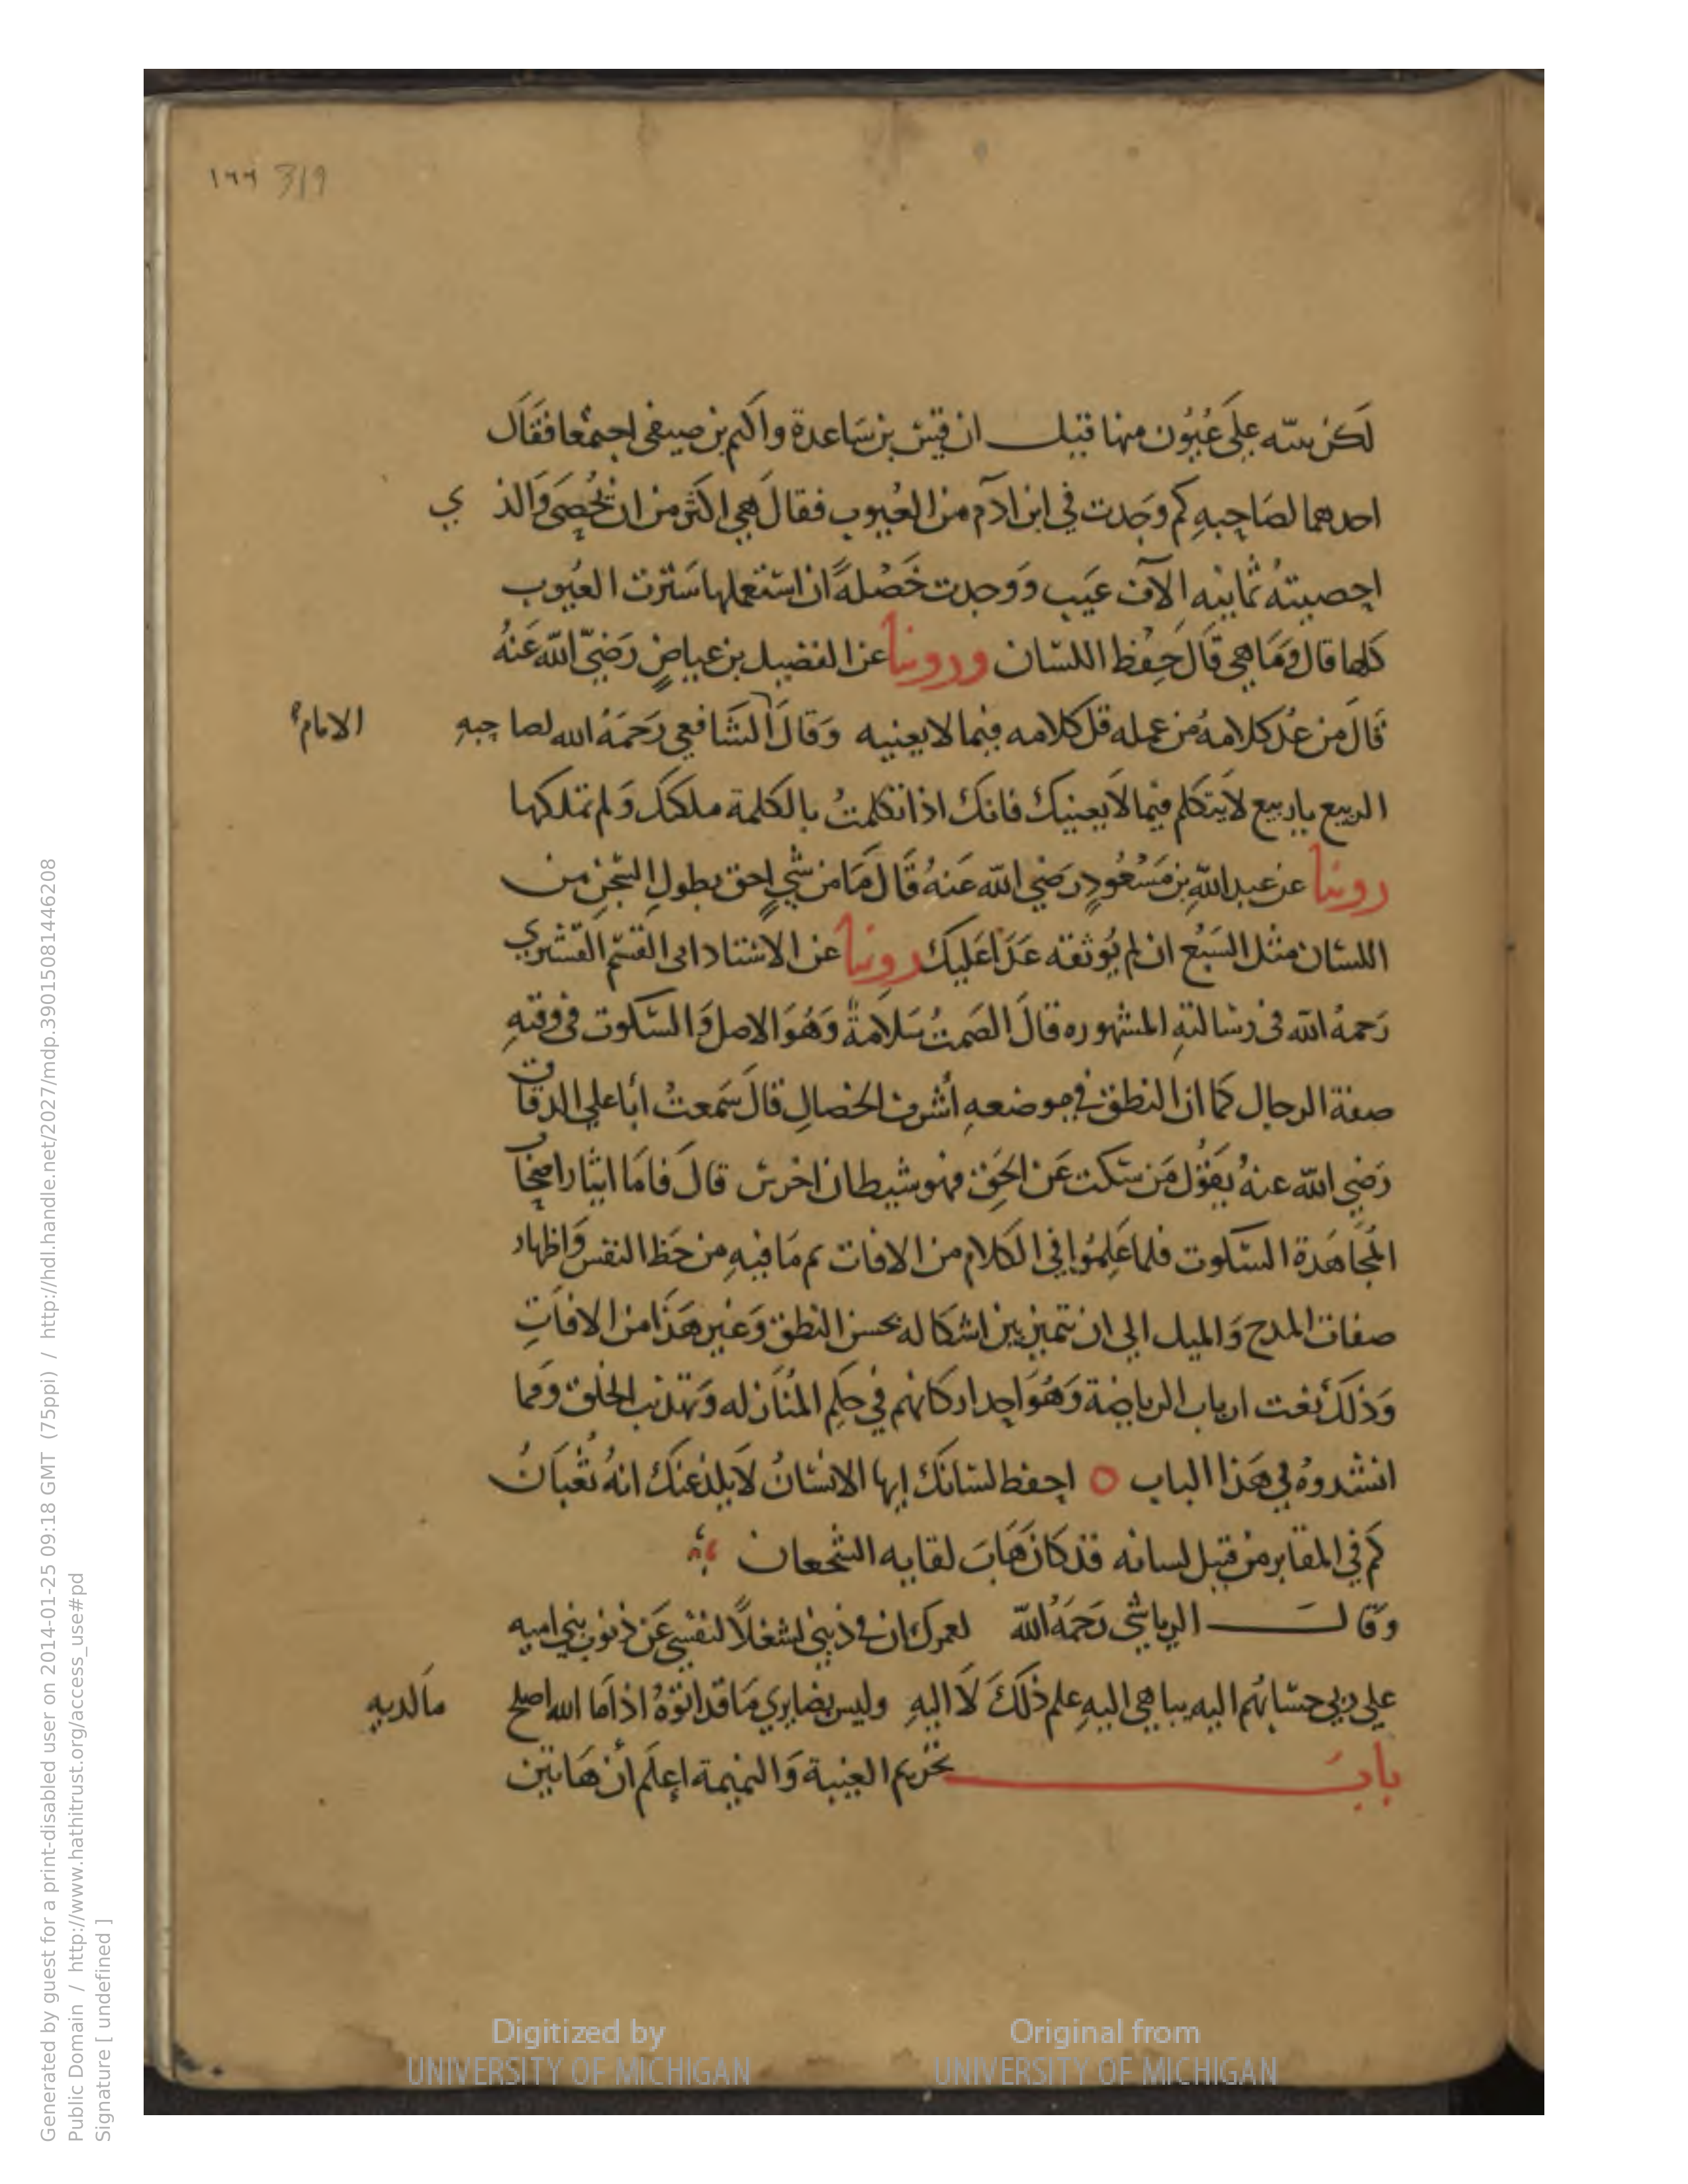 ١٦٦ 319
لَكن ننبّه على عُيُون منها قيل ان قيس بن سَاعدة واكثم بن صيفي اجتمعا فقَال
احدهما لصَاحِبهِ كم وَجدت في ابن ادَم من العُيوب فقال هي اكثر من ان تُحْصَى وَالذي
احصيتهُ ثمانيه الآف عَيب وَوجدت خَصْلةً ان استعملها سَترت العُيوب
كلها قال وَمَا هي قَالَ حِفظ اللسَان وروينا عن الفضيل بن عياضٍ رَضيَ اللّه عَنهُ
قَالَ من عُدّ كلامهُ من عمله قل كلامه فيما لا يعنيه وَقالَ الشَافعي رَحمَهُ الله لصاحِبهِ
الامام
الربيع ياربيع لا يَتكلم فيما لا يَعنيكَ فانكَ اذا تكلمتُ بالكلمة ملكتك وَلم تملكها
روينا عن عبد اللّهِ بن مَسْعُودٍ رَضي اللّه عَنهُ قَالَ مَا من شيٍ احق بطولِ السّجنِ من
اللسَان مثل السَبُع ان لم يُوثقه عَدَا عَليكَ روينا عن الاستاد ابى القسم القشيري
رَحمهُ اللّه فى رسالتهِ المشهوره قالَ الصَمتُ سَلامَةٌ وَهُوَ الاصل وَالسّكوت فى وقتهِ
صفة الرجال كما ان النطق في موضعهِ أشرف الخصالِ قالَ سَمعتُ أبا على الدقاق
رَضِي اللّه عنهُ يَقوُل مَن سَكت عَن الحَق فهو شيطان اخرس قالَ فامَا ايثار اصحاب
المُجَاهَدة السّكوت فلما عَلِمُوا في الكلام من الافات ثم مَا فيهِ من حَظ النفس وَاظهار
صفات المدح وَالميل الي ان تتميز بين اشكاله بحسن النطق وَغير هَذا من الافاتِ
وَذلكَ نعت ارباب الرياضة وَهُوَ احد اركانهم في حكم المُنَازله وَتهذيب الخلق وَمما
انشدوهُ في هَذا الباب ٥ احفظ لسَانكَ ايها الانسَانُ لا يلدغنكَ انهُ ثُعْبَانُ
كم في المقابر من قتيل لسانه قد كان هَابَ لقايه الشجعان
وَقالَ الرياشي رَحمَهُ اللّه لعمرك ان في ذنبي لشغلاً لنفسي عَن ذنوب بني اميه
على ربي حسَابُهم اليه يباهي اليهِ علم ذلكَ لا اليهِ وليس بضايري مَا قد اتوهُ اذا مَا الله اصلح مَا لديهِ
بابُ تحريم الغيبة وَالنميمة اعلَم أن هَاتين
Generated by guest for a print-disabled user on 2014-01-25 09:18 GMT (75ppi) / http://hdl.handle.net/2027/mdp.39015081446208
Public Domain / http://www.hathitrust.org/access_use#pd
Signature [ undefined ]
Digitized by
UNIVERSITY OF MICHIGAN
Original from
UNIVERSITY OF MICHIGAN